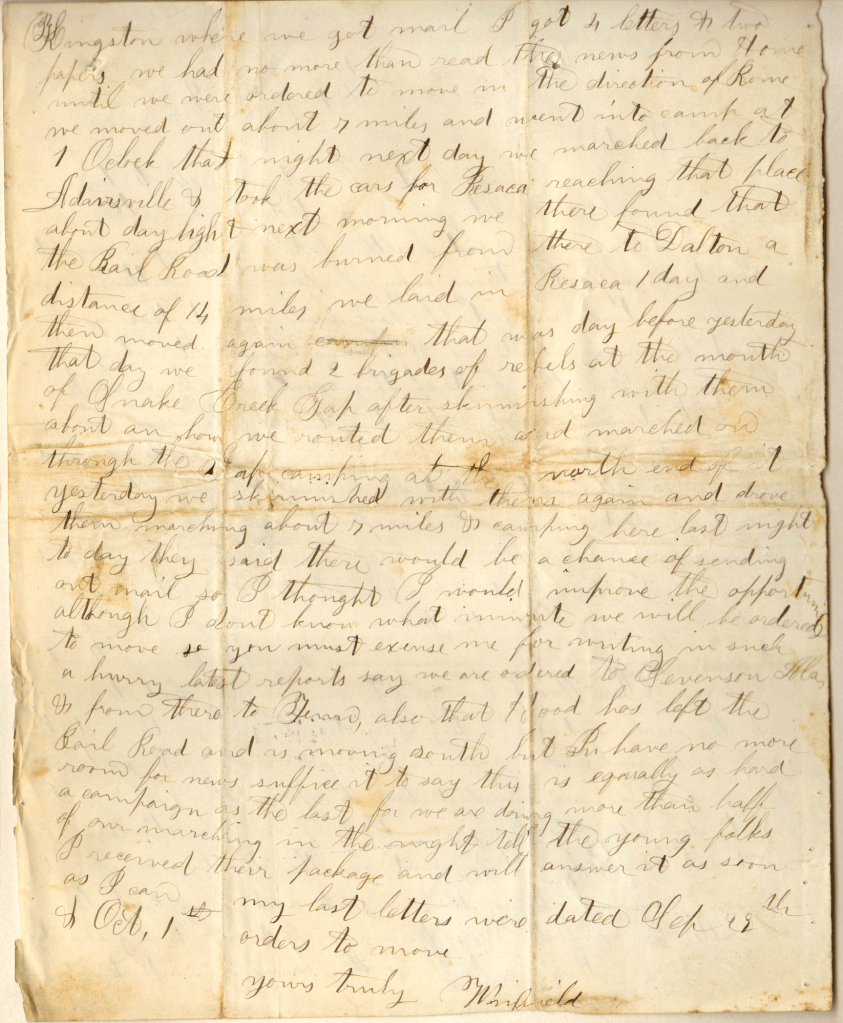 Kingston where we got mail I got 4 letters & two
papers, we had no more than read the news from Home
until we were ordered to move in the direction of Rome
we moved out about 7 miles and went into camp at
1 Oclock that night next day we marched back to
Adairsville & took the cars for Resaca reaching that place
about day light next morning we there found that
the Rail Road was burned from there to Dalton a
distance of 14 miles we laid in Resaca 1 day and
then moved again camp that was day before yesterday
that day we found 2 brigades of rebels at the mouth
of Snake Creek Gap after skirmishing with them
about an hour we routed them and marched on
through the Gap camping at the north end of it
yesterday we skirmished with them again and drove
them marching about 7 miles & camping here last night
to day they said there would be a chance of sending
out mail so I thought I would improve the opportunity
although I dont know what minute we will be ordered
to move so you must excuse me for writing in such
a hurry latest reports say we are ordered to Stevenson Ala,
& from there to also that Hood has left the
Rail Road and is moving south but I have no more
room for news suffice it to say this is equally as hard
a campaign as the last for we are doing more than half
of our marching in the night tell the young folks
I received their package and will answer it as soon
as I can my last letters were dated Sep 29th
& Oct, 1st
orders to move
yours truly Winfield